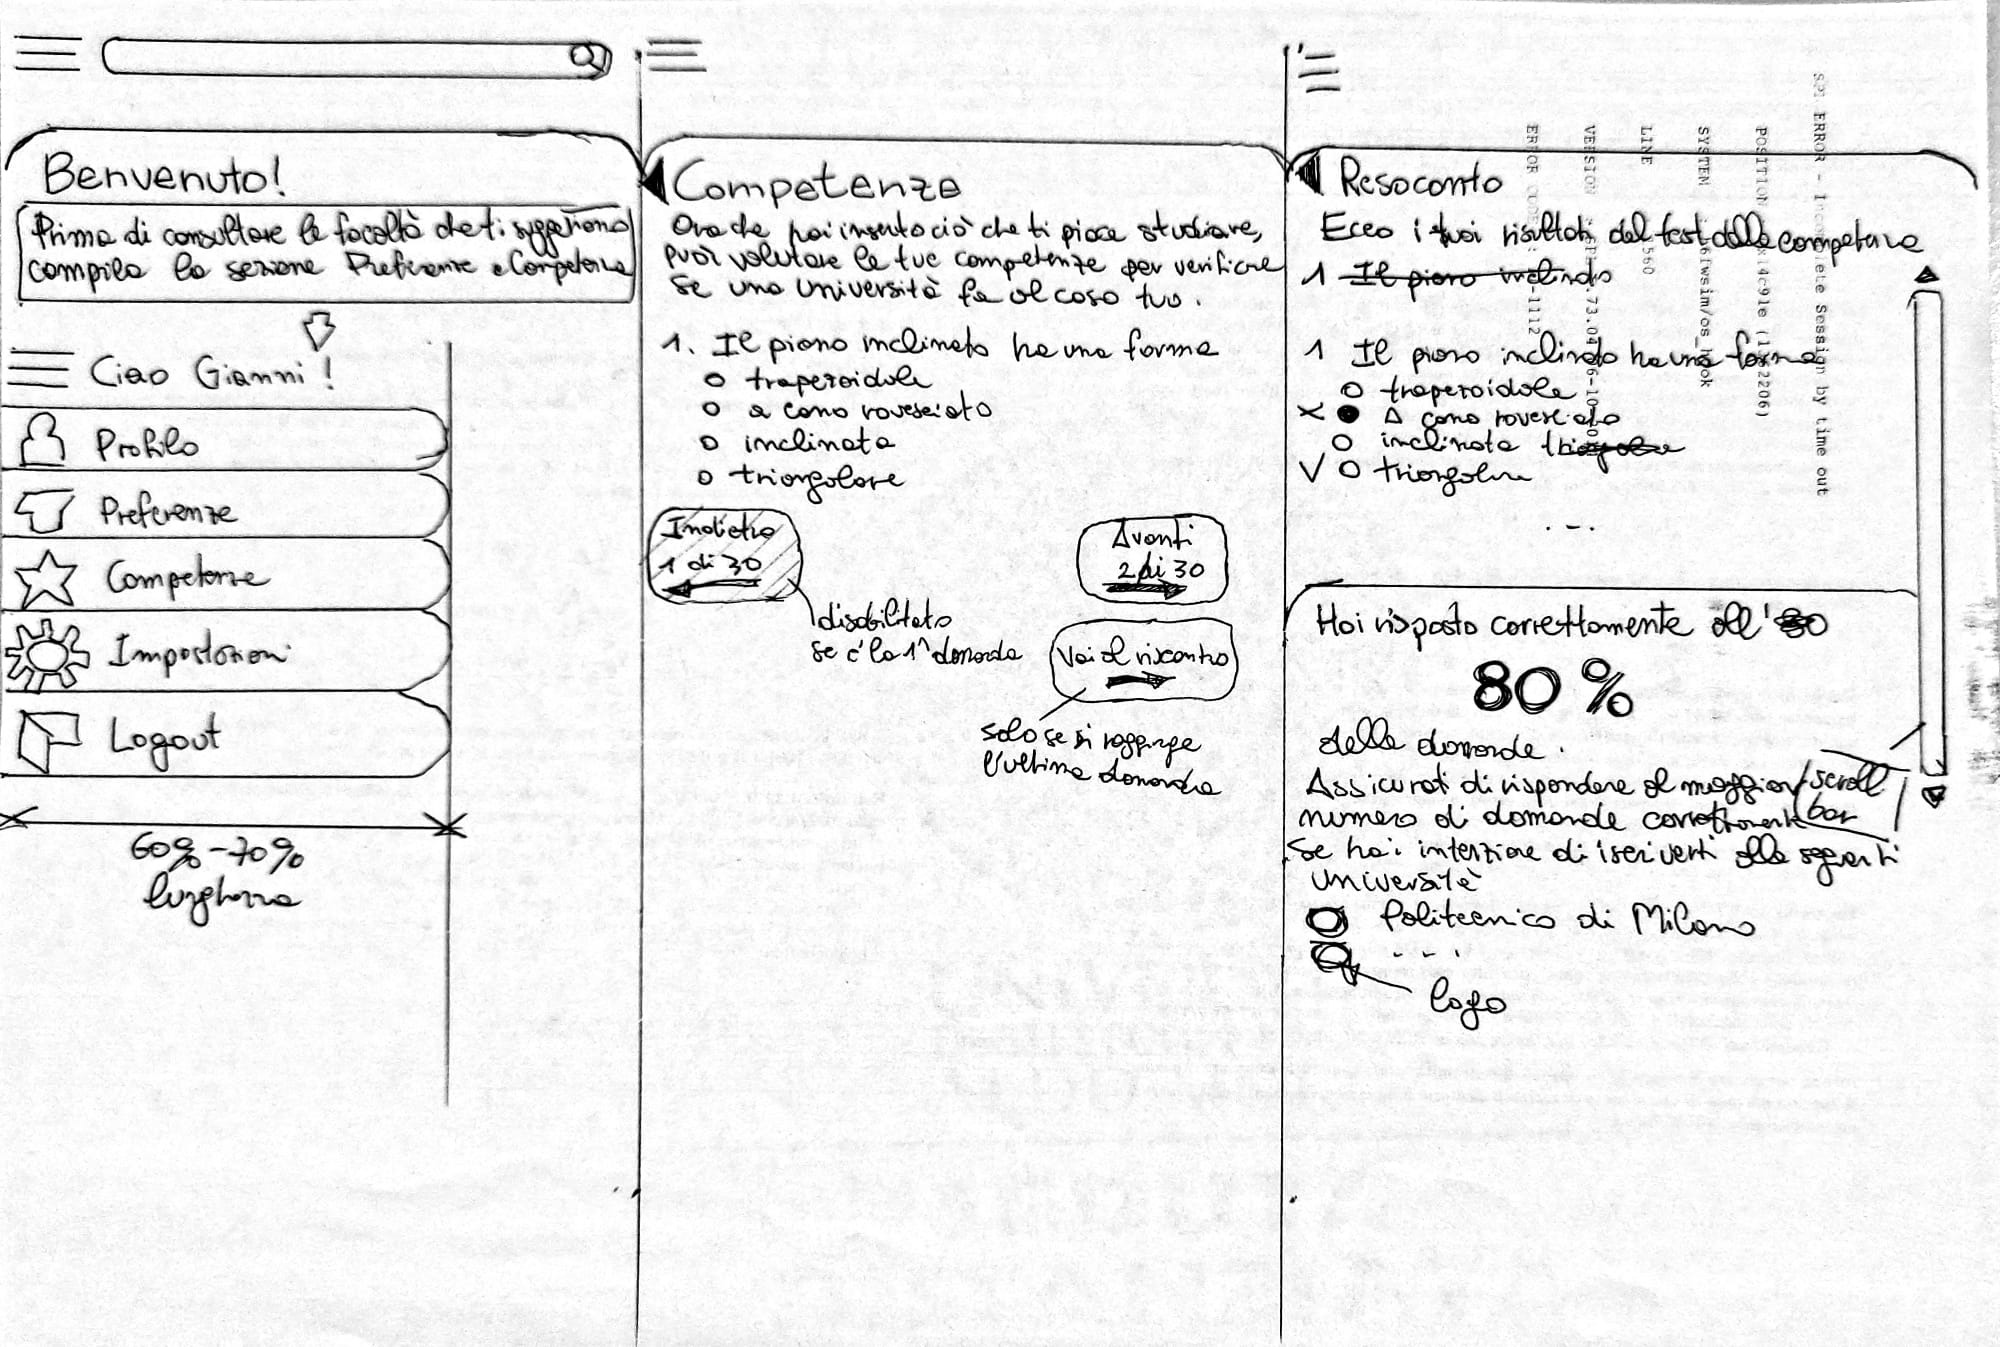 Benvenuto!
Prima di consultare le facoltà che ti suggeriamo
compila la sezione Preferenze e Competenze
Ciao Gianni!
Profilo
Preferenze
Competenze
Impostazioni
Logout
60% - 70%
larghezza
Competenze
Ora che hai inserito ciò che ti piace studiare,
puoi valutare le tue competenze per verificare
se una università fa al caso tuo.
1. Il piano inclinato ha una forma
trapezoidale
a cono rovesciato
inclinata
triangolare
Indietro
1 di 30
Avanti
2 di 30
disabilitato
se è la 1^ domanda
Vai al riscontro
solo se si raggiunge
l'ultima domanda
Resoconto
Ecco i tuoi risultati del test delle competenze
1 Il piano inclinato
1 Il piano inclinato ha una forma
trapezoidale
a cono rovesciato
inclinata triangolare
triangolare
...
Hai risposto correttamente all'80
80 %
delle domande.
Assicurati di rispondere al maggior
numero di domande correttamente
se hai intenzione di iscriverti alle seguenti
università
Politecnico di Milano
...
logo
scroll
bar
ERROR -1112
VERSION 73.04
LINE 560
SYSTEM
POSITION
ERROR - Incomplete Session by time out